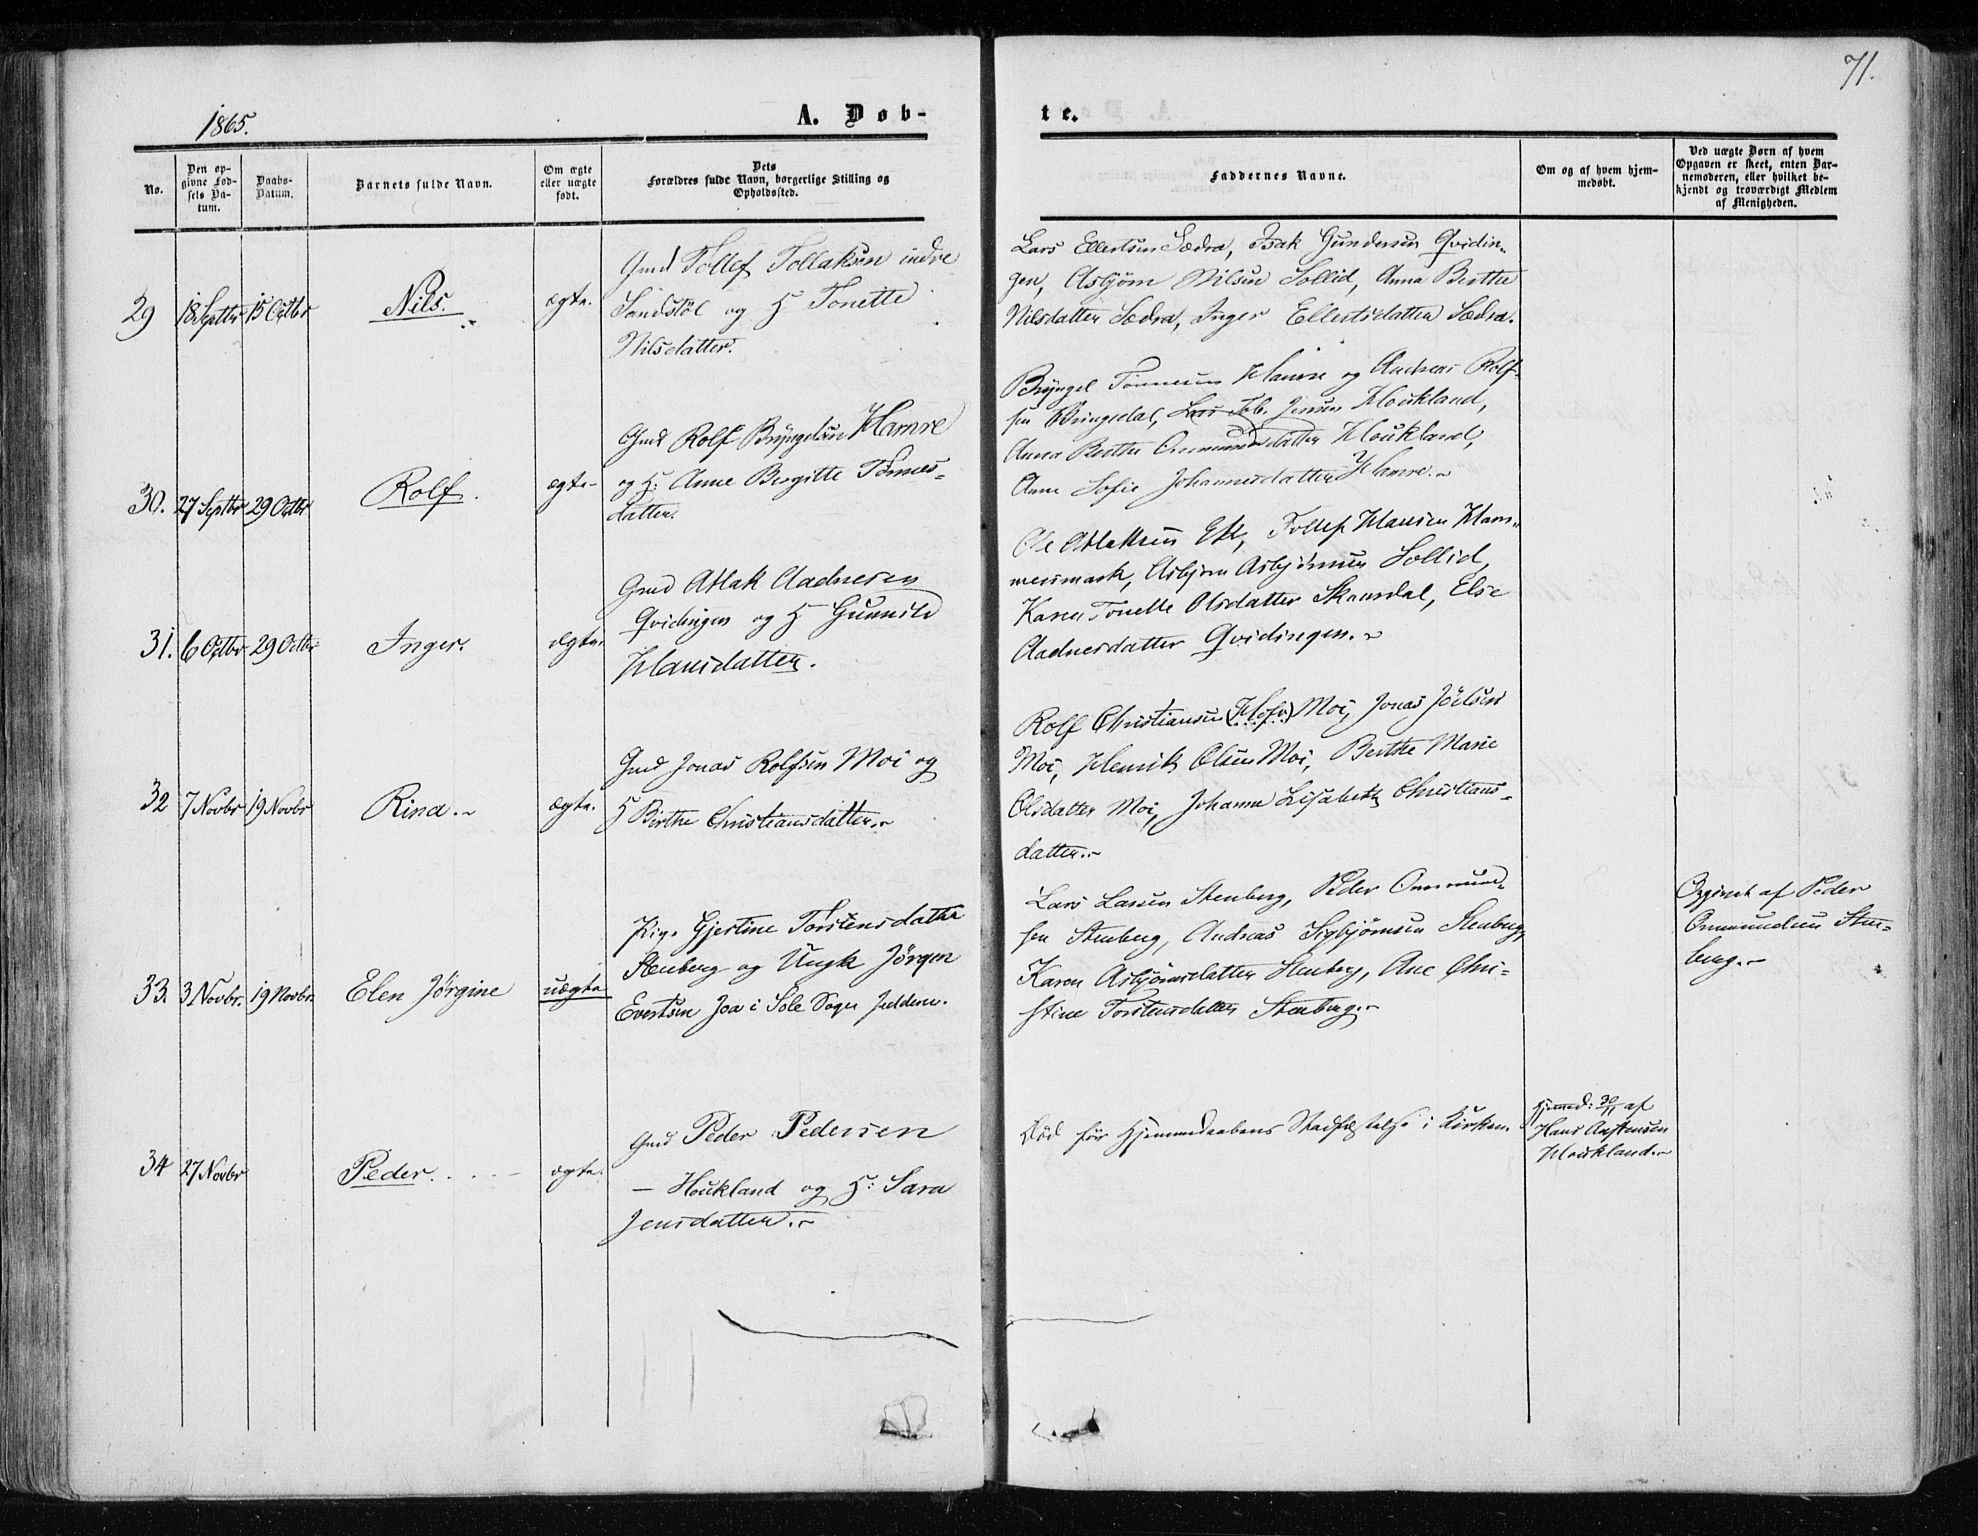 71.
1865.
A. Døb-
te.
No.
Den op-
givne Fød-
sels Da-
tum.
Daabs-
Datum.
Barnets fulde Navn.
Om ægte
eller uægte
født.
Dets
Forældres fulde Navn, borgerlige Stilling og
Opholdssted.
Faddernes Navne.
Om og af hvem hjem-
medøbt.
Ved uægte Børn af hvem
Opgaven er skeet, enten Bar-
nemoderen, eller hvilket be-
kjendt og troværdigt Medlem
af Menigheden.
29 18 Septbr 15 Octbr Nils. ægte.
Gmd Tollef Tollaksen indre
Sandstöl og H Tonette
Nilsdatter.
Lars Ellertsen Sædra, Isak Gundersen Qvidin-
gen, Asbjörn Nilsen Sollid, Anna Berthe
Nilsdatter Sædra, Inger Ellertsdatter Sædra.
30. 27 Septbr 29 Octbr Rolf. ægte-
Gmd Rolf Bryngelsen Hamre
og H: Anne Birgitte Tönnes-
datter.
Bryngel Tönnesen Hamre og Andreas Rolf-
sen Bringedal, Lars Jensen Houkland,
Anna Berthe Ommundsdatter Houkland,
Anne Sofie Johannesdatter Hamre.-
31. 6 Octbr 29 Octbr Inger. ægte.
Gmd Atlak Aadnesen
Qvidingen og H Gunnild
Hansdatter.
Ole Atlaksen Eke, Tollef Hansen Ham-
mersmark, Asbjörn Asbjörnsen Sollid,
Karen Tonette Olsdatter Skaardal, Else
Aadnesdatter Qvidingen.-
32 7 Novbr 19 Novbr Rina.- ægte.
Gmd Jonas Rolfsen Moi og
H Birthe Christiansdatter.-
Rolf Christiansen (Hofv) Moi, Jonas Jöelsen
Moi, Henrik Olsen Moi, Berthe Marie
Olsdatter Moi, Johanne Lisabeth Christians-
datter.-
33. 3 Novbr. 19 Novbr. Elen Jörgine uægte
Pige Gjertine Torstensdatter
Stenberg og Ungk Jörgen
Evertsen Joa i Sole Sogn Jædderen.
Lars Larsen Stenberg, Peder Ommund-
sen Stenberg, Andreas Sigbjörnsen Stenberg,
Karen Asbjörnsdatter Stenberg, Ane Chri-
stine Torstensdatter Stenberg.-
Opgivet af Peder
Ommundsen Sten-
berg.-
34 27 Novbr Peder. ægte.
Gmd Peder Pedersen
- Houkland og H: Sara
Jensdatter.-
Död för Hjemmedaabens Stadfæstelse i Kirken.
Hjemmed: 30/11 af
Hans Aastensen
Houkland.-